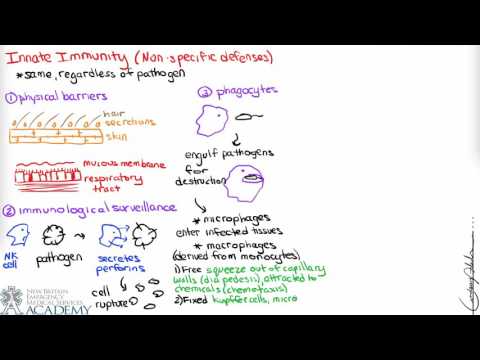 Innate Immunity (Non-specific defenses)
*same, regardless of pathogen
① physical barriers
hair
secretions
skin
mucous membrane
respiratory
tract
② immunological surveillance
NK
cell
pathogen
secretes
perforins
cell
rupture
③ phagocytes
engulf pathogens
for
destruction
* microphages
enter infected tissues
* macrophages
(derived from monocytes)
1) Free squeeze out of capillary
walls (diapedesis), attracted to
chemicals (chemotaxis)
2) Fixed kupffer cells, micro
NEW BRITAIN
EMERGENCY
MEDICAL SERVICES
ACADEMY